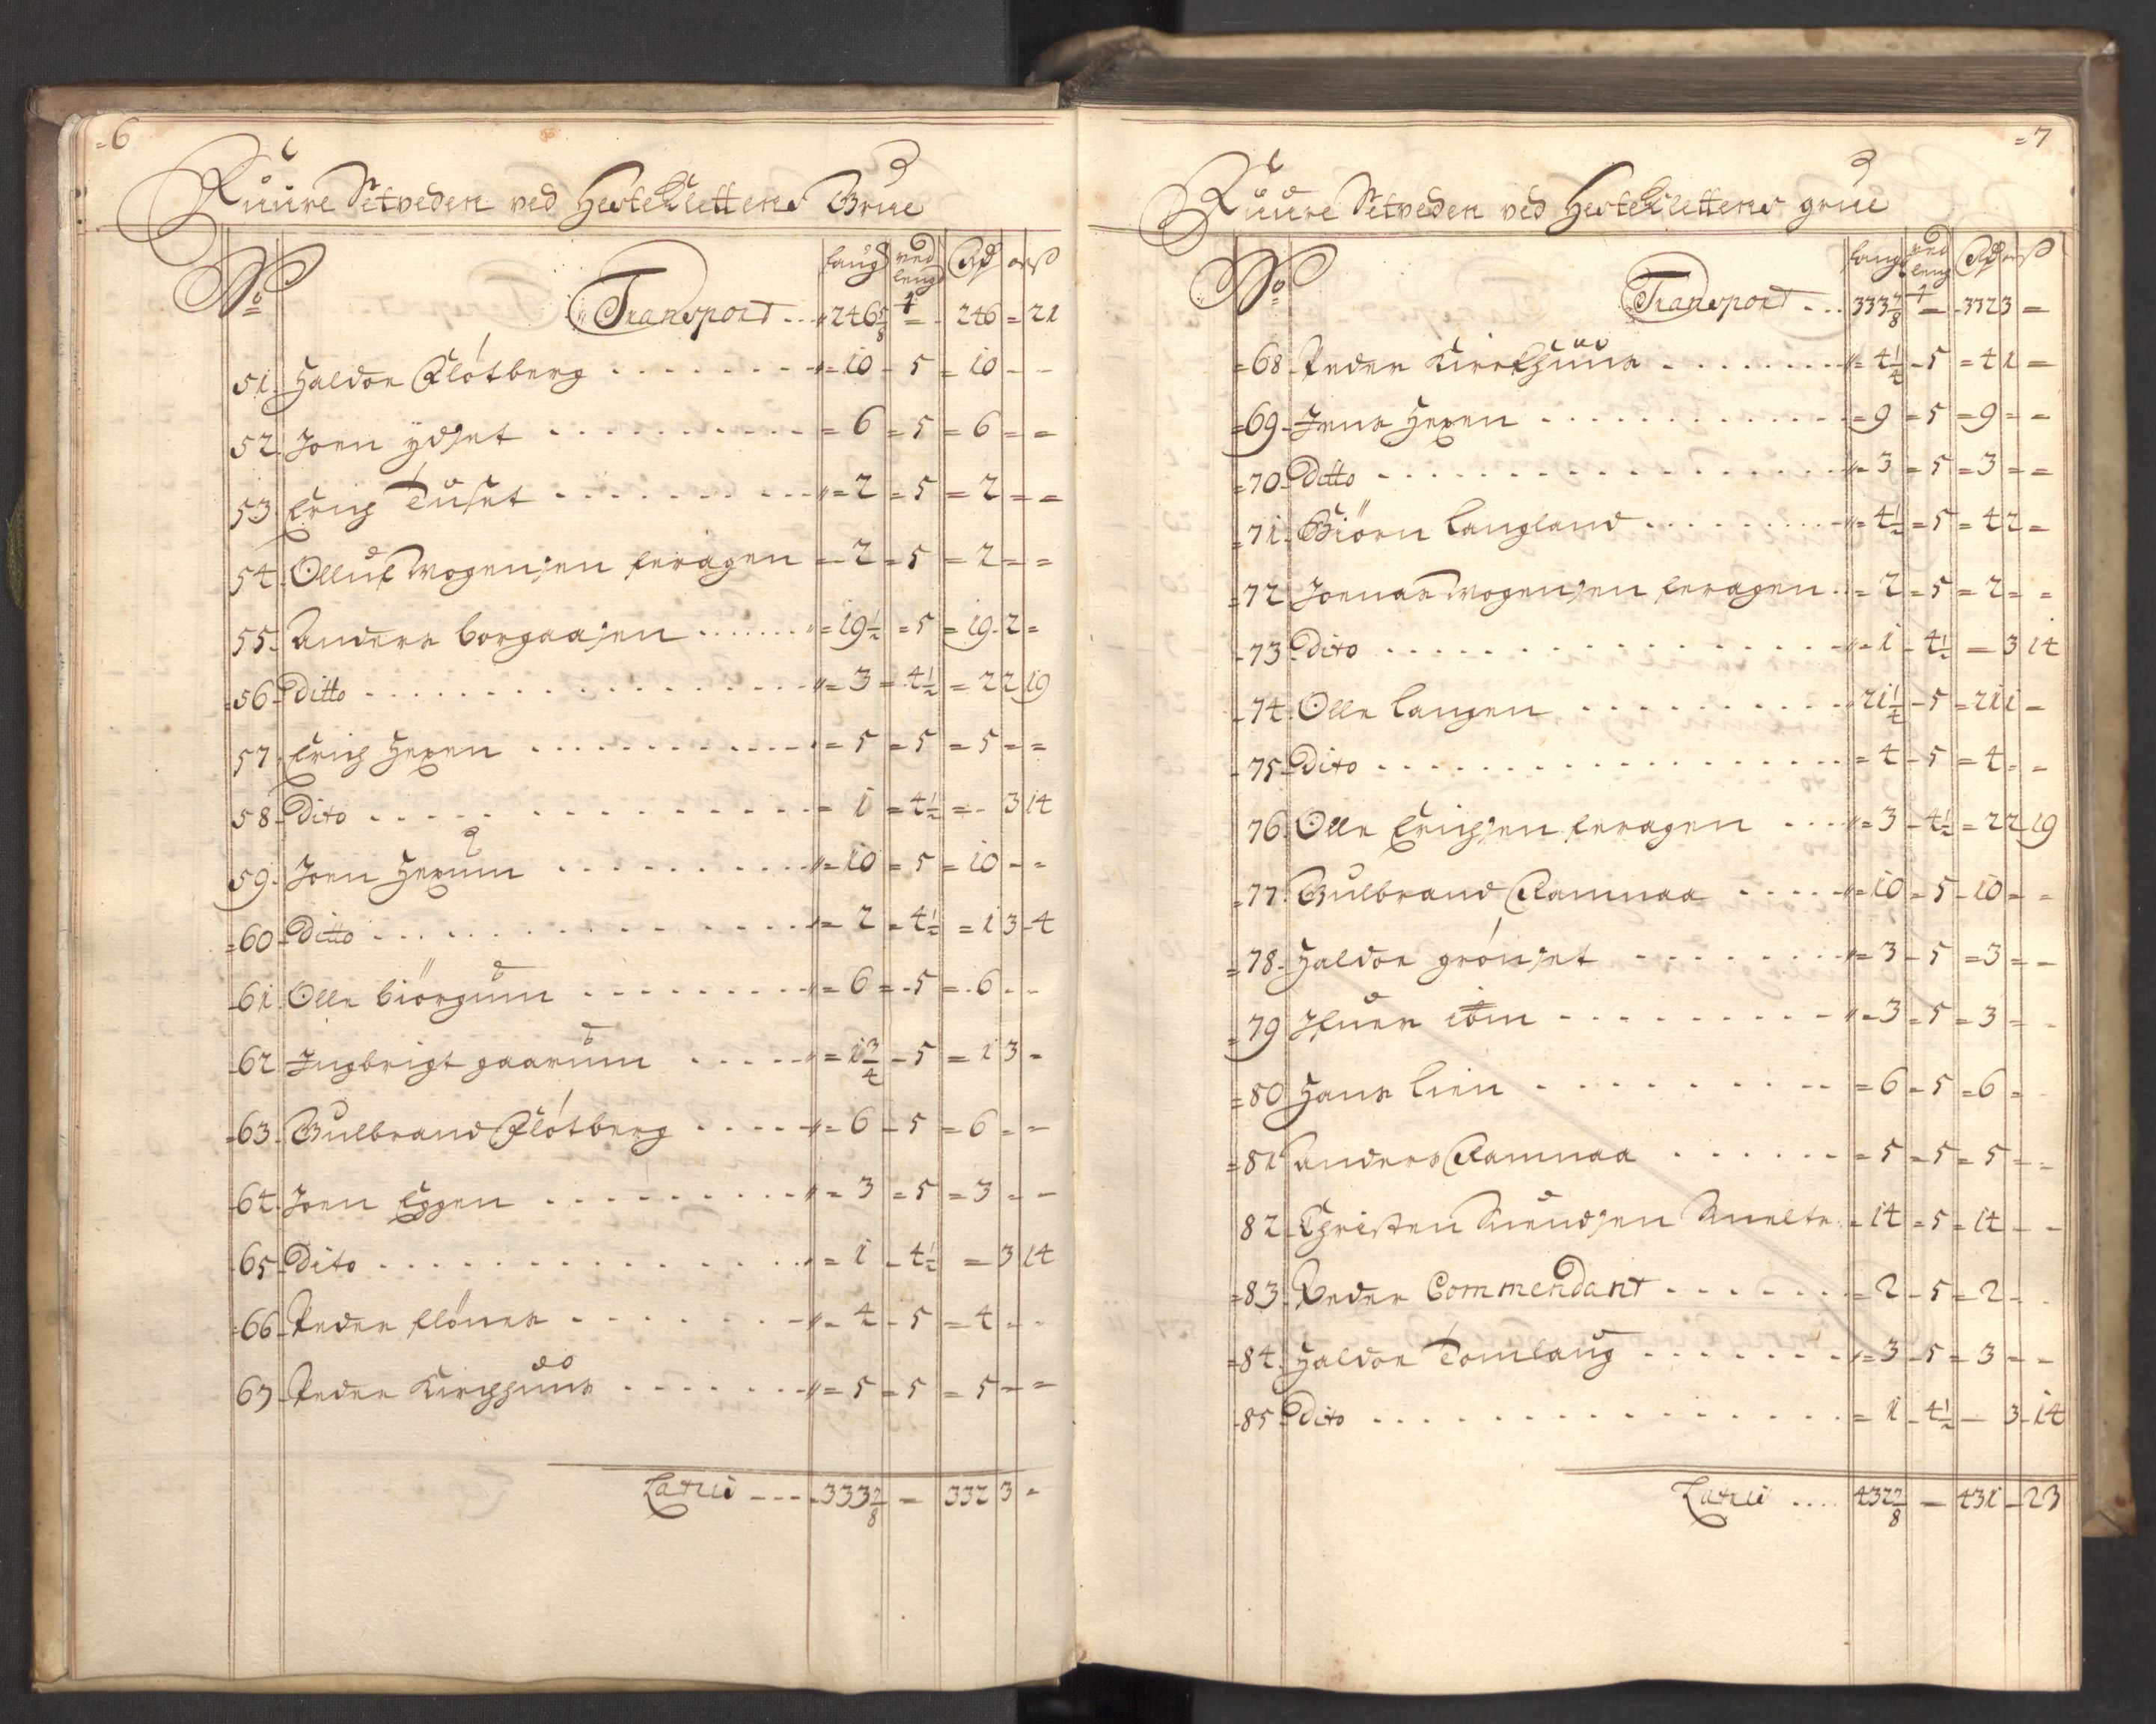 6
Ruure Setveden ved HesteKlettens Grue
No faug ved leng Rd ort ß
Transport ... 246 5/8 4 = 246 = 21
51 Haldor Fløtberg ....... 10 - 5 = 10 - -
52 Joen ydset .......... = 6 = 5 = 6 = =
53 Erich Tuset .......... = 2 = 5 = 2 = =
54 Olluf Mogensen feragen = 2 = 5 = 2 = =
55 Anders borgaasen ....... = 19 1/2 = 5 = 19 - 2 =
56 Ditto ............... = 3 = 4 1/2 = 2 2 19
57 Erich Hexen ............ = 5 = 5 = 5 = =
58 Dito ............... = 1 = 4 1/2 = - 3 14
59 Joen Hexum .......... = 10 = 5 = 10 - =
60 Ditto ............... = 2 = 4 1/2 = 1 3 - 4
61 Olle biörgum ......... = 6 = 5 = 6 - -
62 Ingbrigt gaarum ..... = 1 3/4 - 5 = 1 3 -
63 Gulbrand Fløtberg ..... = 6 - 5 = 6 - -
64 Joen Eggen ......... = 3 = 5 = 3 = -
65 Dito ............... = 1 - 4 1/2 = 3 14
66 Peder flönes ....... - 4 - 5 - 4 - -
67 Peder Kirchhuus ....... = 5 = 5 = 5 - =
Latus .... 333 7/8 - 332 3 -
7
Ruure Setveden ved HesteKlettens grue
No faug ved leng Rd ort ß
Transport ... 333 7/8 4 - 332 3 =
68 Peder Kirchhuus ........ = 4 1/4 - 5 = 4 1 =
69 Jens Hexen ............. = 9 = 5 = 9 = =
70 Ditto ................ = 3 = 5 = 3 = =
71 Biörn Langland ......... = 4 1/2 = 5 = 4 2 =
72 Joenas Mogensen feragen . = 2 = 5 = 2 = =
73 Dito ............... = 1 - 4 1/2 = 3 14
74 Olle Langen .......... 21 1/4 - 5 = 21 1 -
75 Dito ................. = 4 - 5 = 4 - -
76 Olle Erichsen feragen ... = 3 - 4 1/2 = 2 2 19
77 Gulbrand Ramnaa ..... = 10 = 5 - 10 = =
78 Haldor grönset ........ = 3 - 5 = 3 = -
79 Ifuer ....... = 3 = 5 = 3 = -
80 Hans Lien ......... = 6 - 5 = 6 = -
81 Anders Ramnaa ...... = 5 = 5 = 5 - -
82 Christen Suendsen Smelte . = 14 = 5 = 14 - -
83 Peder Commendant ...... = 2 - 5 = 2 - -
84 Haldor Tomlaug ....... = 3 - 5 = 3 = -
85 Dito ............... = 1 - 4 1/2 - 3 - 14
Latus .... 432 7/8 - 431 - 23